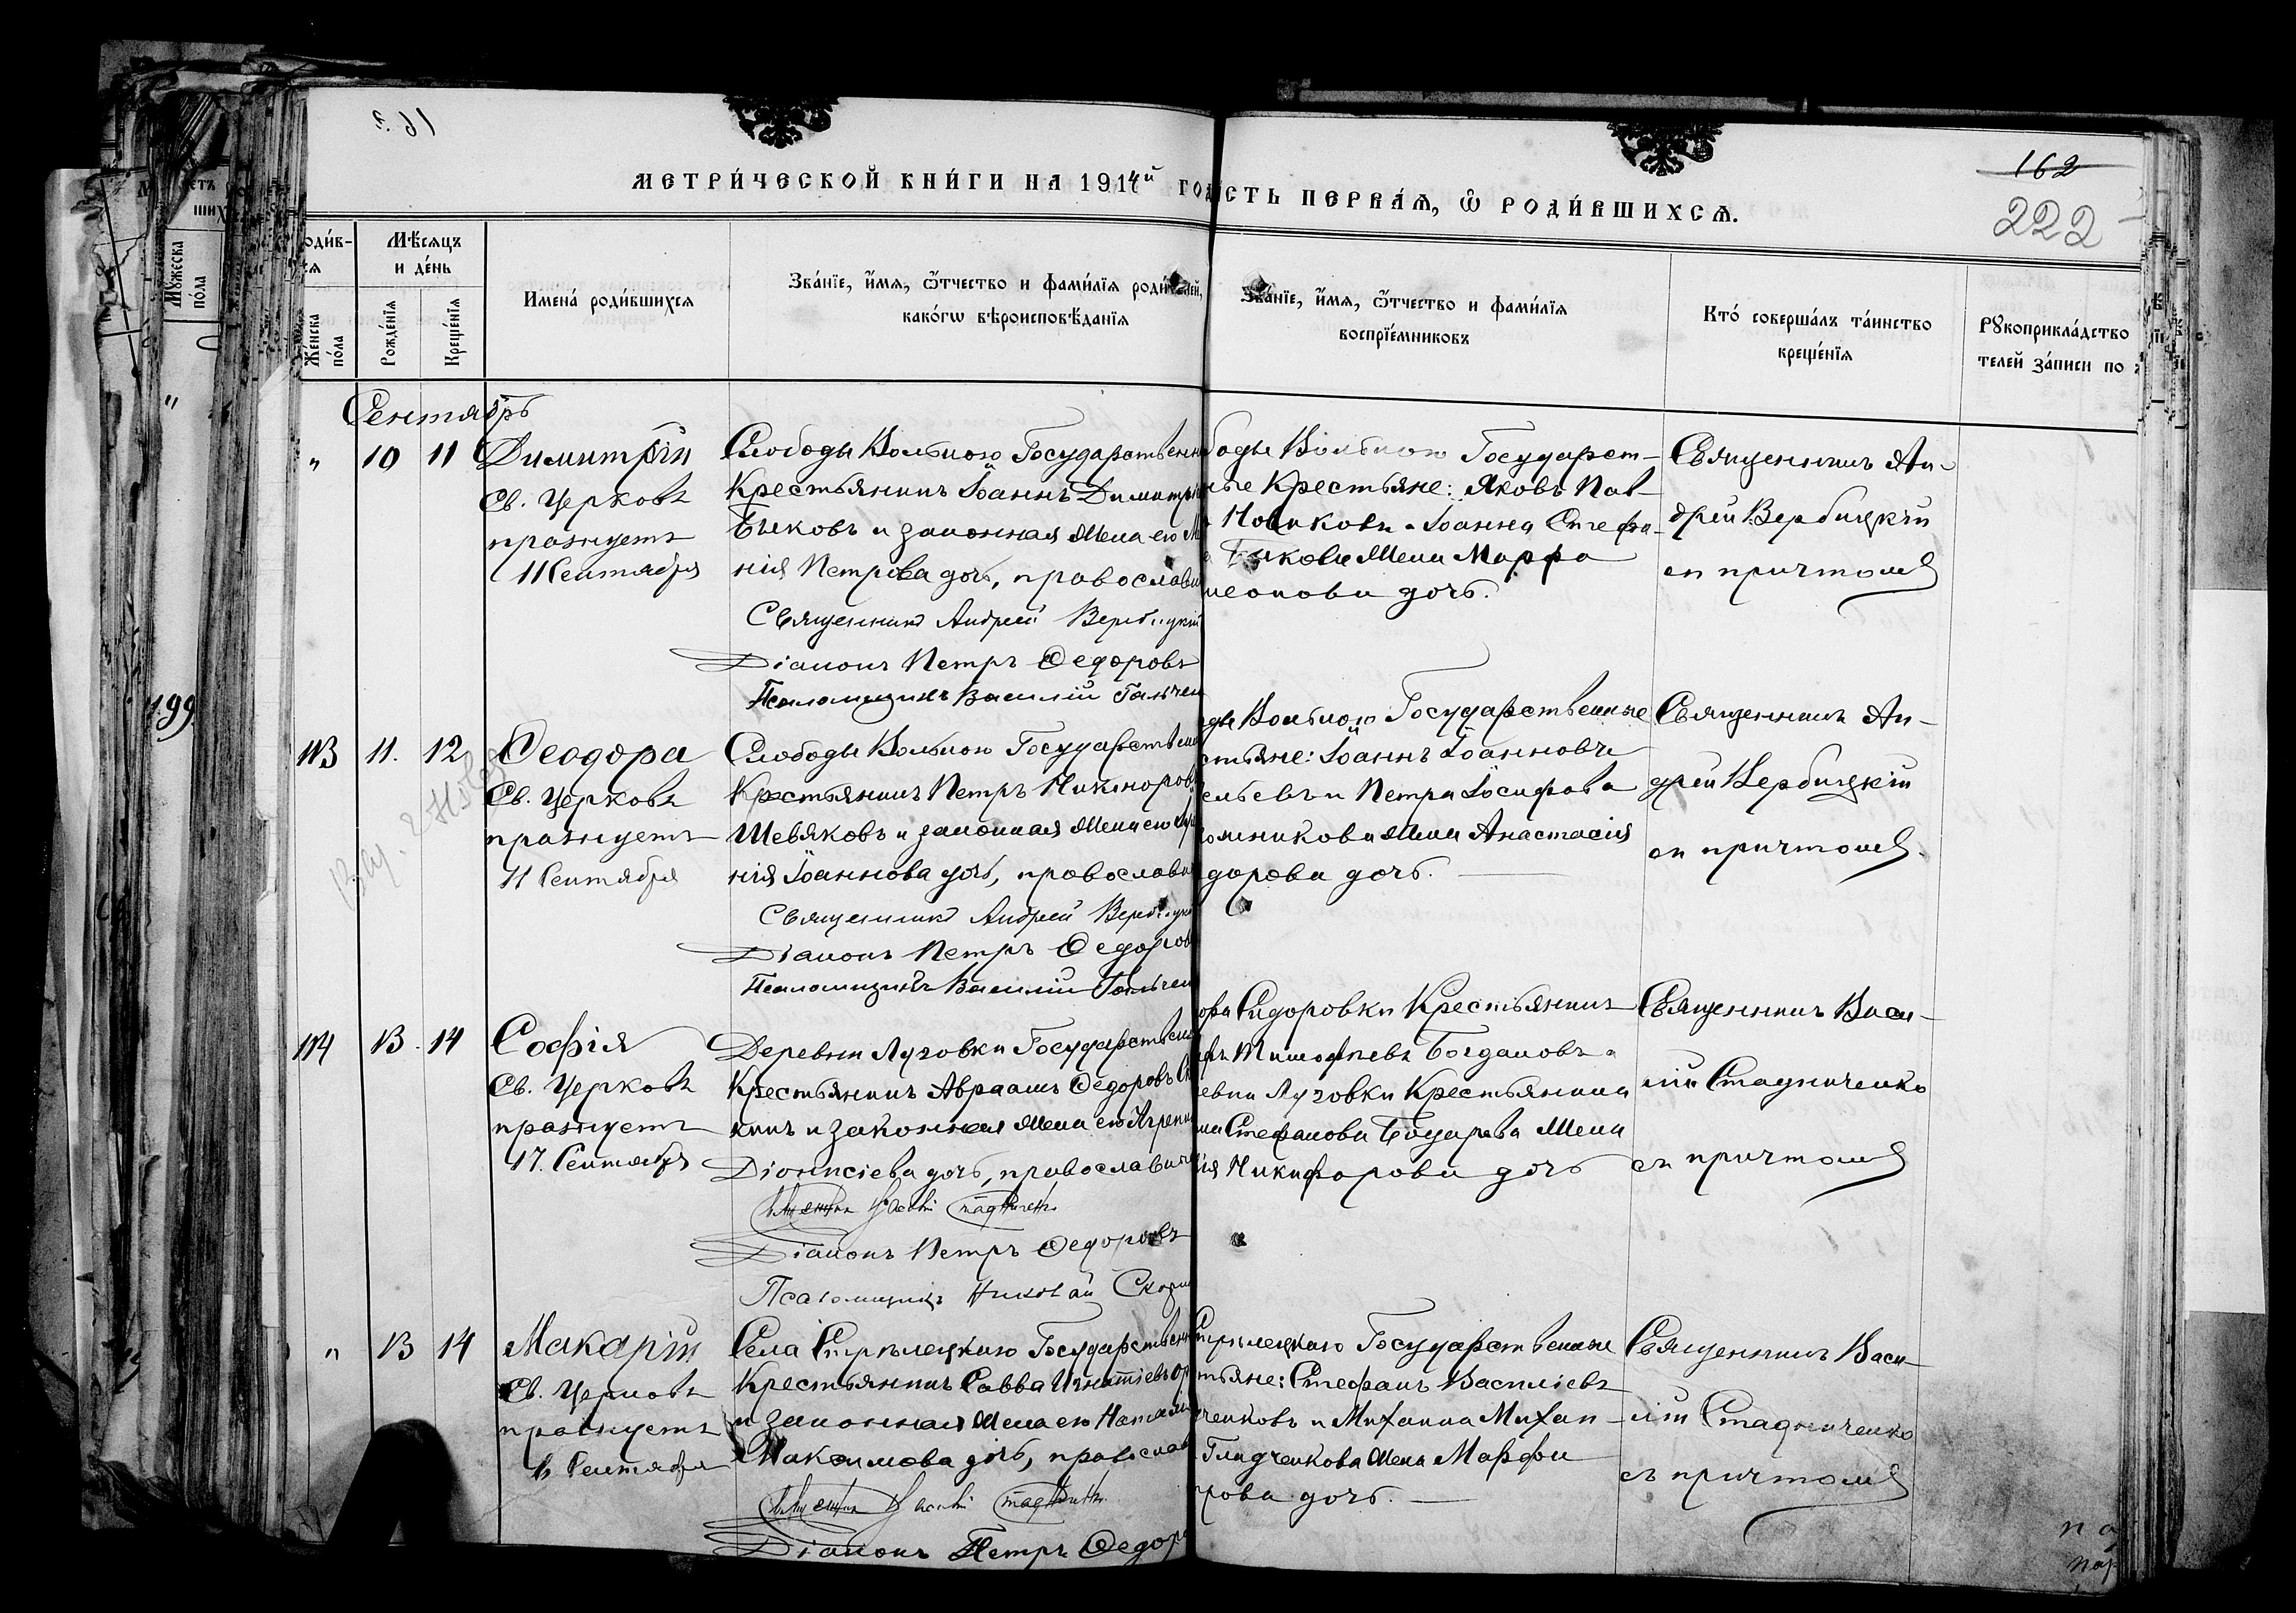 162
222
МЕТРИ́ЧЕСКОЙ КНИ́ГИ НА 1914й ГО
СТЬ ПЕРВА́Ѧ, Ѽ РОДИ́ВШИХСѦ.
Мѣ́сѧцъ и де́нь
Же́нска по́ла
Рожде́нїѧ
Креще́нїѧ
Имена̀ роди́вшихсѧ
Зва́нїе, и҆́мѧ, ѻ҆́тчество и фами́лїѧ роди́телей, како́гѡ вѣроисповѣ́данїѧ
Зва́нїе, и҆́мѧ, ѻ҆́тчество и фами́лїѧ воспрїе́мниковъ
Кто̀ соверша́лъ та́инство креще́нїѧ
Рꙋкоприкла́дство
телей за́писи по
Мꙋ́жеска по́ла
199
Сентябрь
" 10 11 Димитрій
Св. Церковь
празнуетъ
11 Сентября
Слободы Вольного Государственн
Крестьянинъ Іоаннъ Димитрі
Быковъ и законная жена его М
нія Петрова дочь, православн
Священникъ Андрей Вербицкій
Діаконъ Петръ Ѳедоровъ
Псаломщикъ Василій Гальчен
боды Вольного Государст-
ные Крестьяне: Яковъ Пав-
Новиковъ и Іоанна Стефа-
Быкова жена Марфа
меонова дочь.
Священникъ Ан-
дрей Вербицкій
съ причтомъ
113 11. 12 Ѳеодора
Св. Церковь
празнуетъ
11 Сентября
Слободы Вольного Государственн
Крестьянинъ Петръ Никаноров
Шевяковъ и законная жена его
нія Іоаннова дочь, православн
Священникъ Андрей Вербицкі
Діаконъ Петръ Ѳедоров
Псаломщикъ Василій Гальчен
ды Вольного Государственные
стьяне: Іоаннъ Іоанновъ
ельевъ и Петра Іосифова
жена Анастасія
дорова дочь.
Священникъ Ан-
дрей Вербицкій
съ причтомъ
114 13. 14 Софія
Св. Церковь
празнуетъ
17. Сентября
Деревни Луговки Государственн
Крестьянинъ Авраамъ Ѳедоровъ
кинъ и законная жена его Агрепи
Діонисіева дочь, православн
Священникъ Василій Стадниченко
Діаконъ Петръ Ѳедоровъ
Псаломщикъ Николай
ора Сидоровки Крестьянинъ
Тимофѣевъ Богдановъ и
евни Луговки Крестьянина
Стефанова жена
ія Никифорова дочь
Священникъ Васи-
лій Стадниченко
съ причтомъ
" 13 14 Макарій
Св. Церковь
празнуетъ
Сентября
Села Стрѣлецкаго Государственн
Крестьянинъ Савва Игнатіевъ
и законная жена его Натал
Максимова дочь, православ
Священникъ Василій Стадниченко
Діаконъ Петръ Ѳедоро
Стрѣлецкаго Государственные
стьяне: Стефанъ Василіевъ
ченковъ и Михаила Михаи-
Гладченкова жена Марфа
рова дочь.
Священникъ Васи-
лій Стадниченко
съ причтомъ